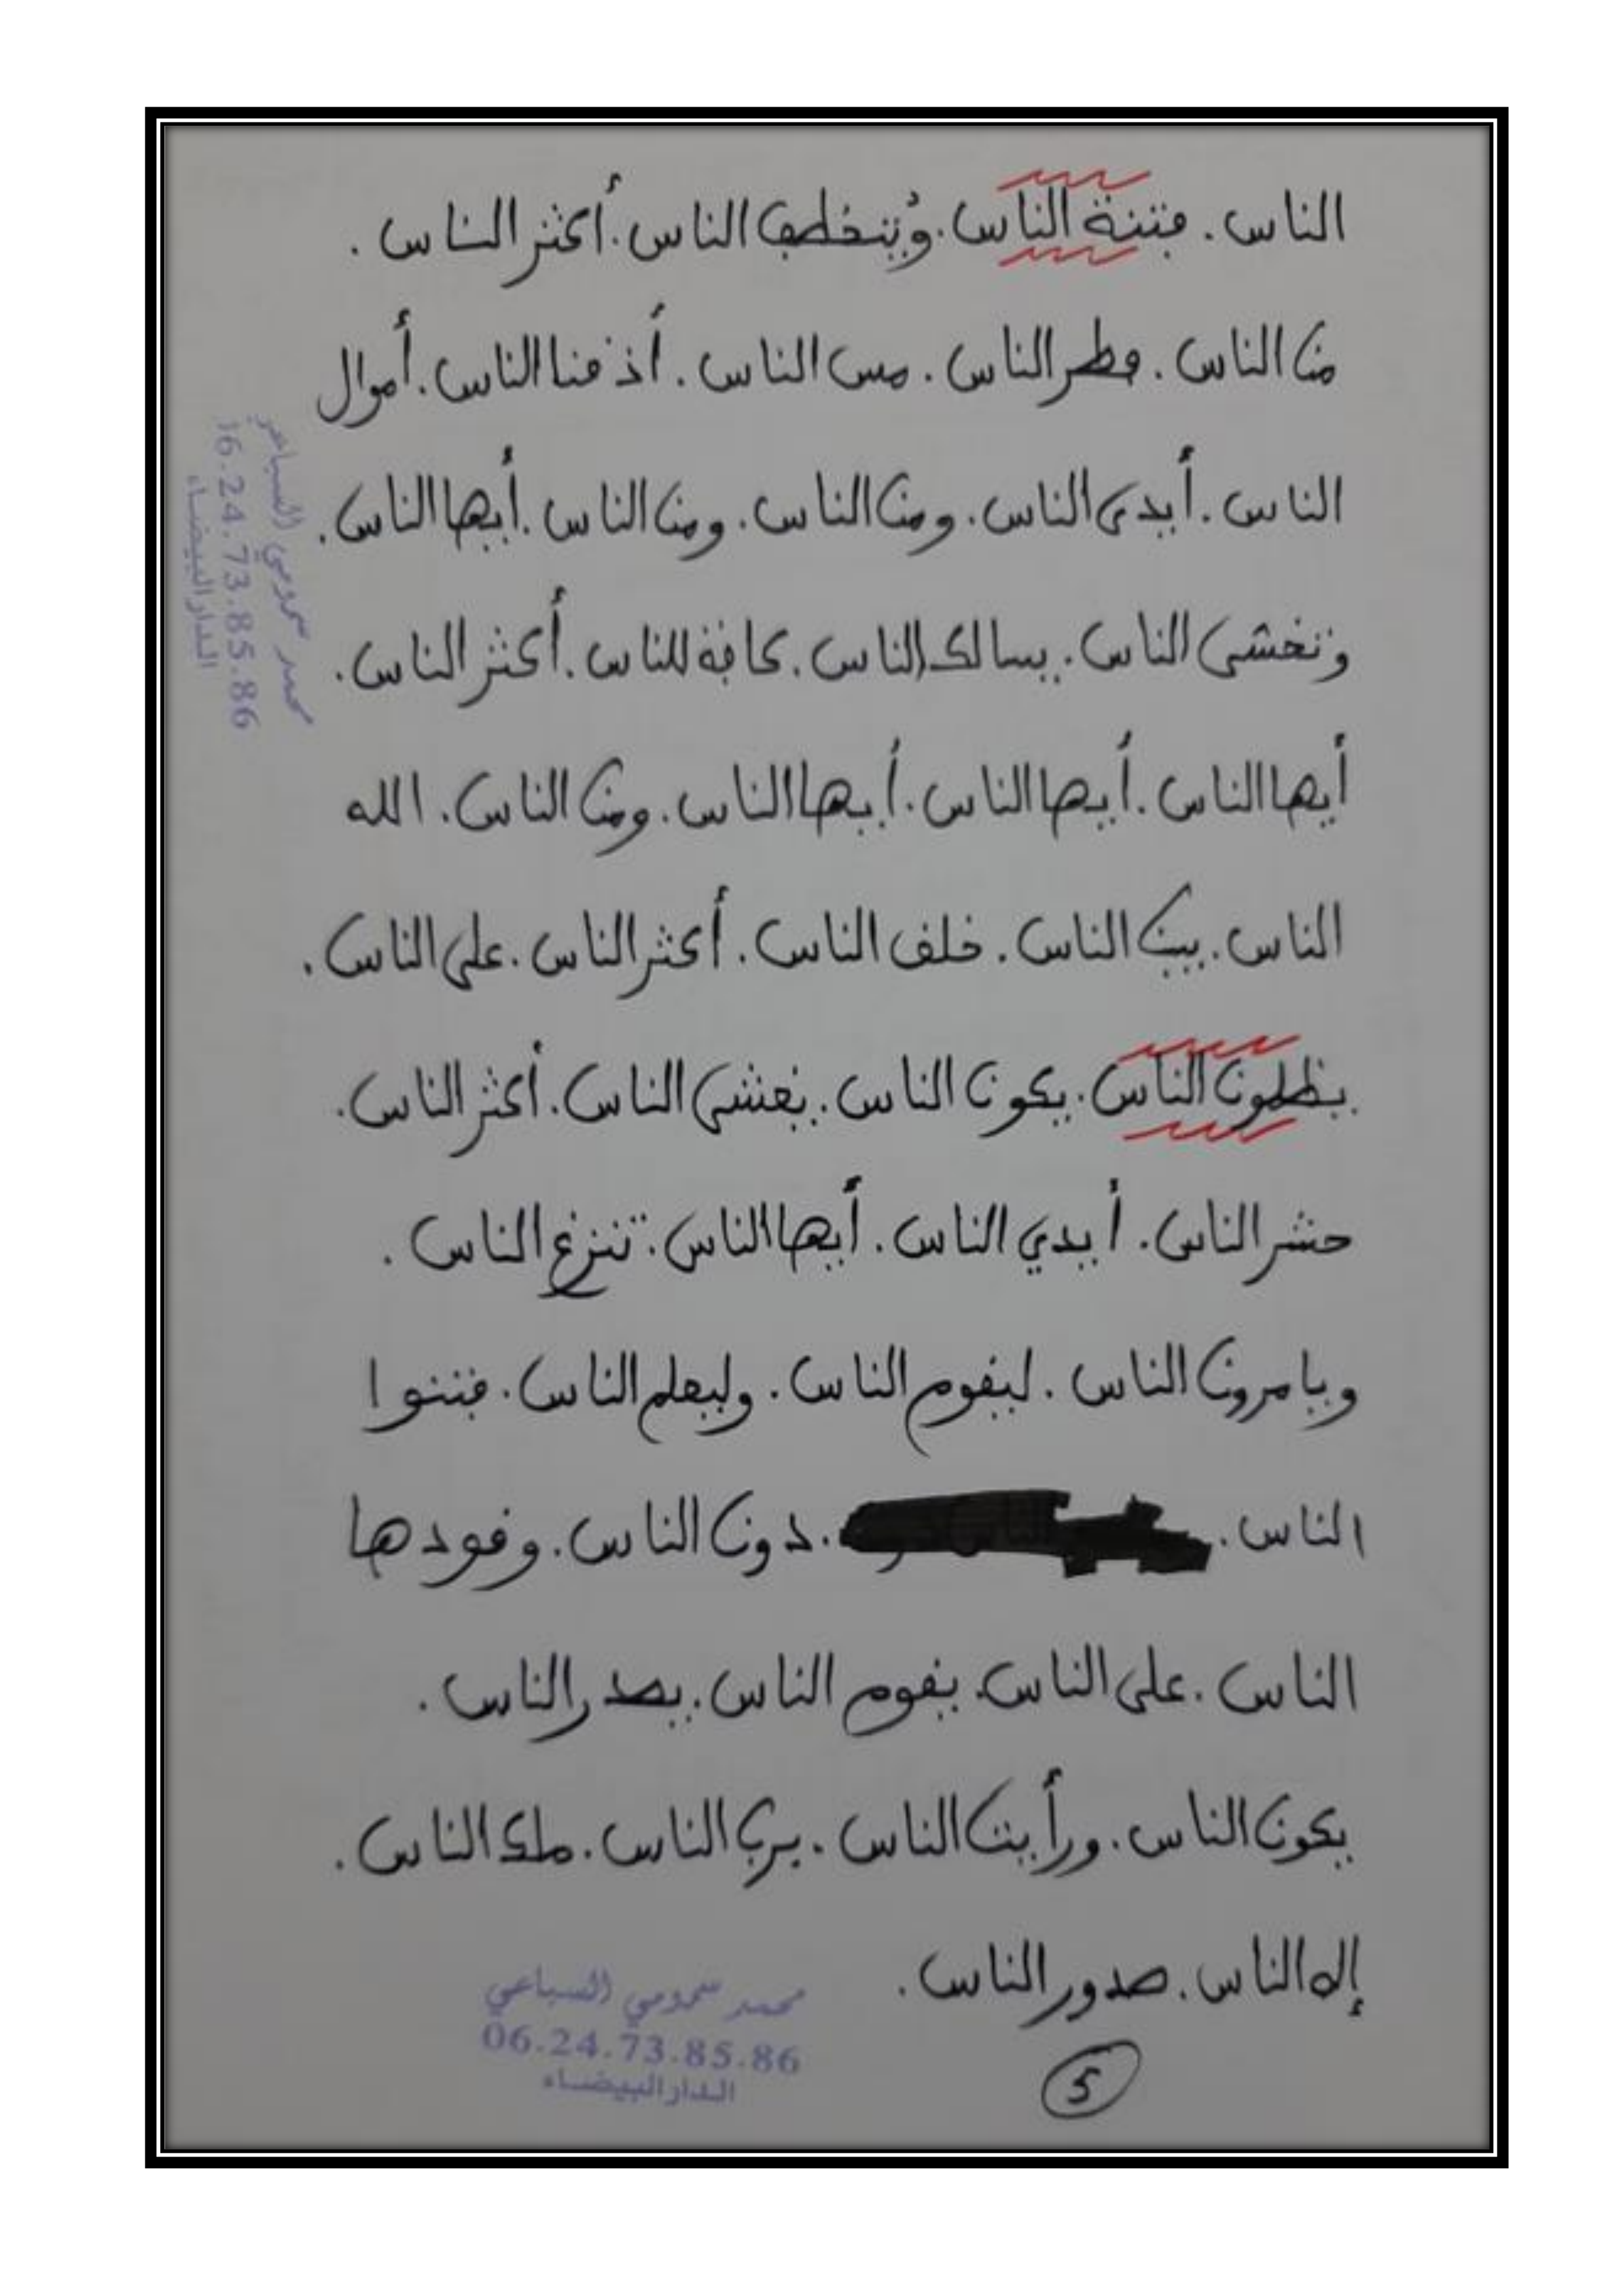 الناس. فتنة الناس. ويتخطف الناس. أكثر الناس.
من الناس. فطر الناس. مس الناس. أذفنا الناس. أموال
الناس. أيدى الناس. ومن الناس. ومن الناس. أيها الناس.
وتخشى الناس. يسالك الناس. كافة للناس. أكثر الناس.
أيها الناس. أيها الناس. أيها الناس. ومن الناس. الله
الناس. بين الناس. خلف الناس. أكثر الناس. على الناس.
يظلمون الناس. يكون الناس. يغشى الناس. أكثر الناس.
حشر الناس. أيدي الناس. أيها الناس. تنزع الناس.
ويامرون الناس. ليقوم الناس. وليعلم الناس. فتنوا
الناس. دون الناس. وقودها
الناس. على الناس. يقوم الناس. يصدر الناس.
يكون الناس. ورأيت الناس. برب الناس. ملك الناس.
إله الناس. صدور الناس.
5
محمد سمومي السباعي
06.24.73.85.86
الدار البيضاء
محمد سمومي السباعي
16.24.73.85.86
الدار البيضاء